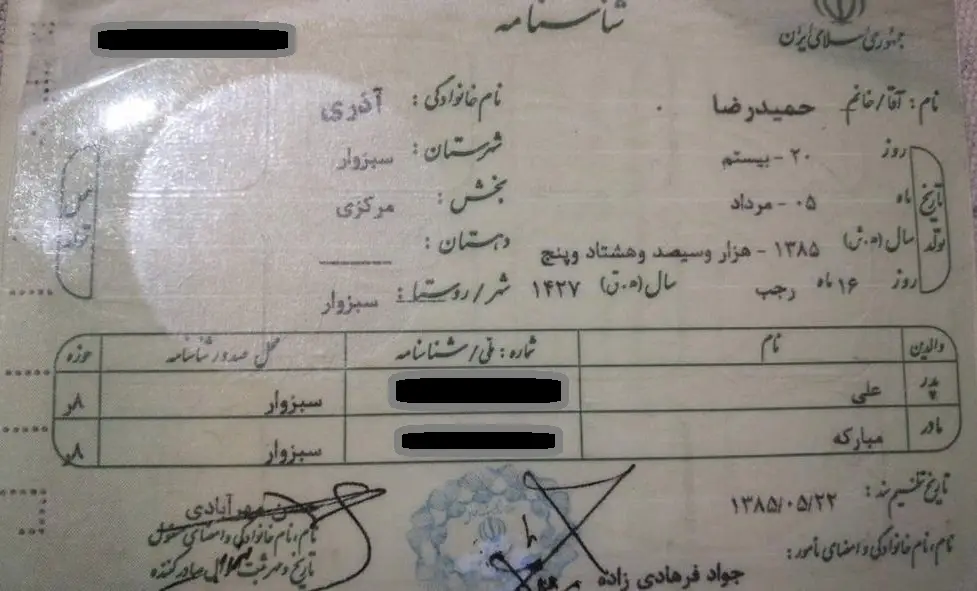 شناسنامه
جمهوری اسلامی ایران
نام: آقا/خانم حمیدرضا نام خانوادگی: آذری
روز ۲۰ - بیستم شهرستان: سبزوار
تاریخ تولد ماه ۰۵ - مرداد بخش: مرکزی
سال (ه.ش) ۱۳۸۵ - هزار وسیصد وهشتاد وپنج دهستان:
روز ۱۶ ماه رجب سال (ه.ق) ۱۴۲۷ شهر/روستا: سبزوار
والدین نام شماره: ملی/شناسنامه محل صدور شناسنامه حوزه
پدر علی سبزوار ۸ر
مادر مبارکه سبزوار ۸ر
تاریخ تنظیم سند: ۱۳۸۵/۰۵/۲۲
نام، نام خانوادگی و امضای مأمور:
جواد فرهادی زاده
مهرآبادی
نام، نام خانوادگی و امضای مسئول
تاریخ و مهر ثبت احوال صادر کننده